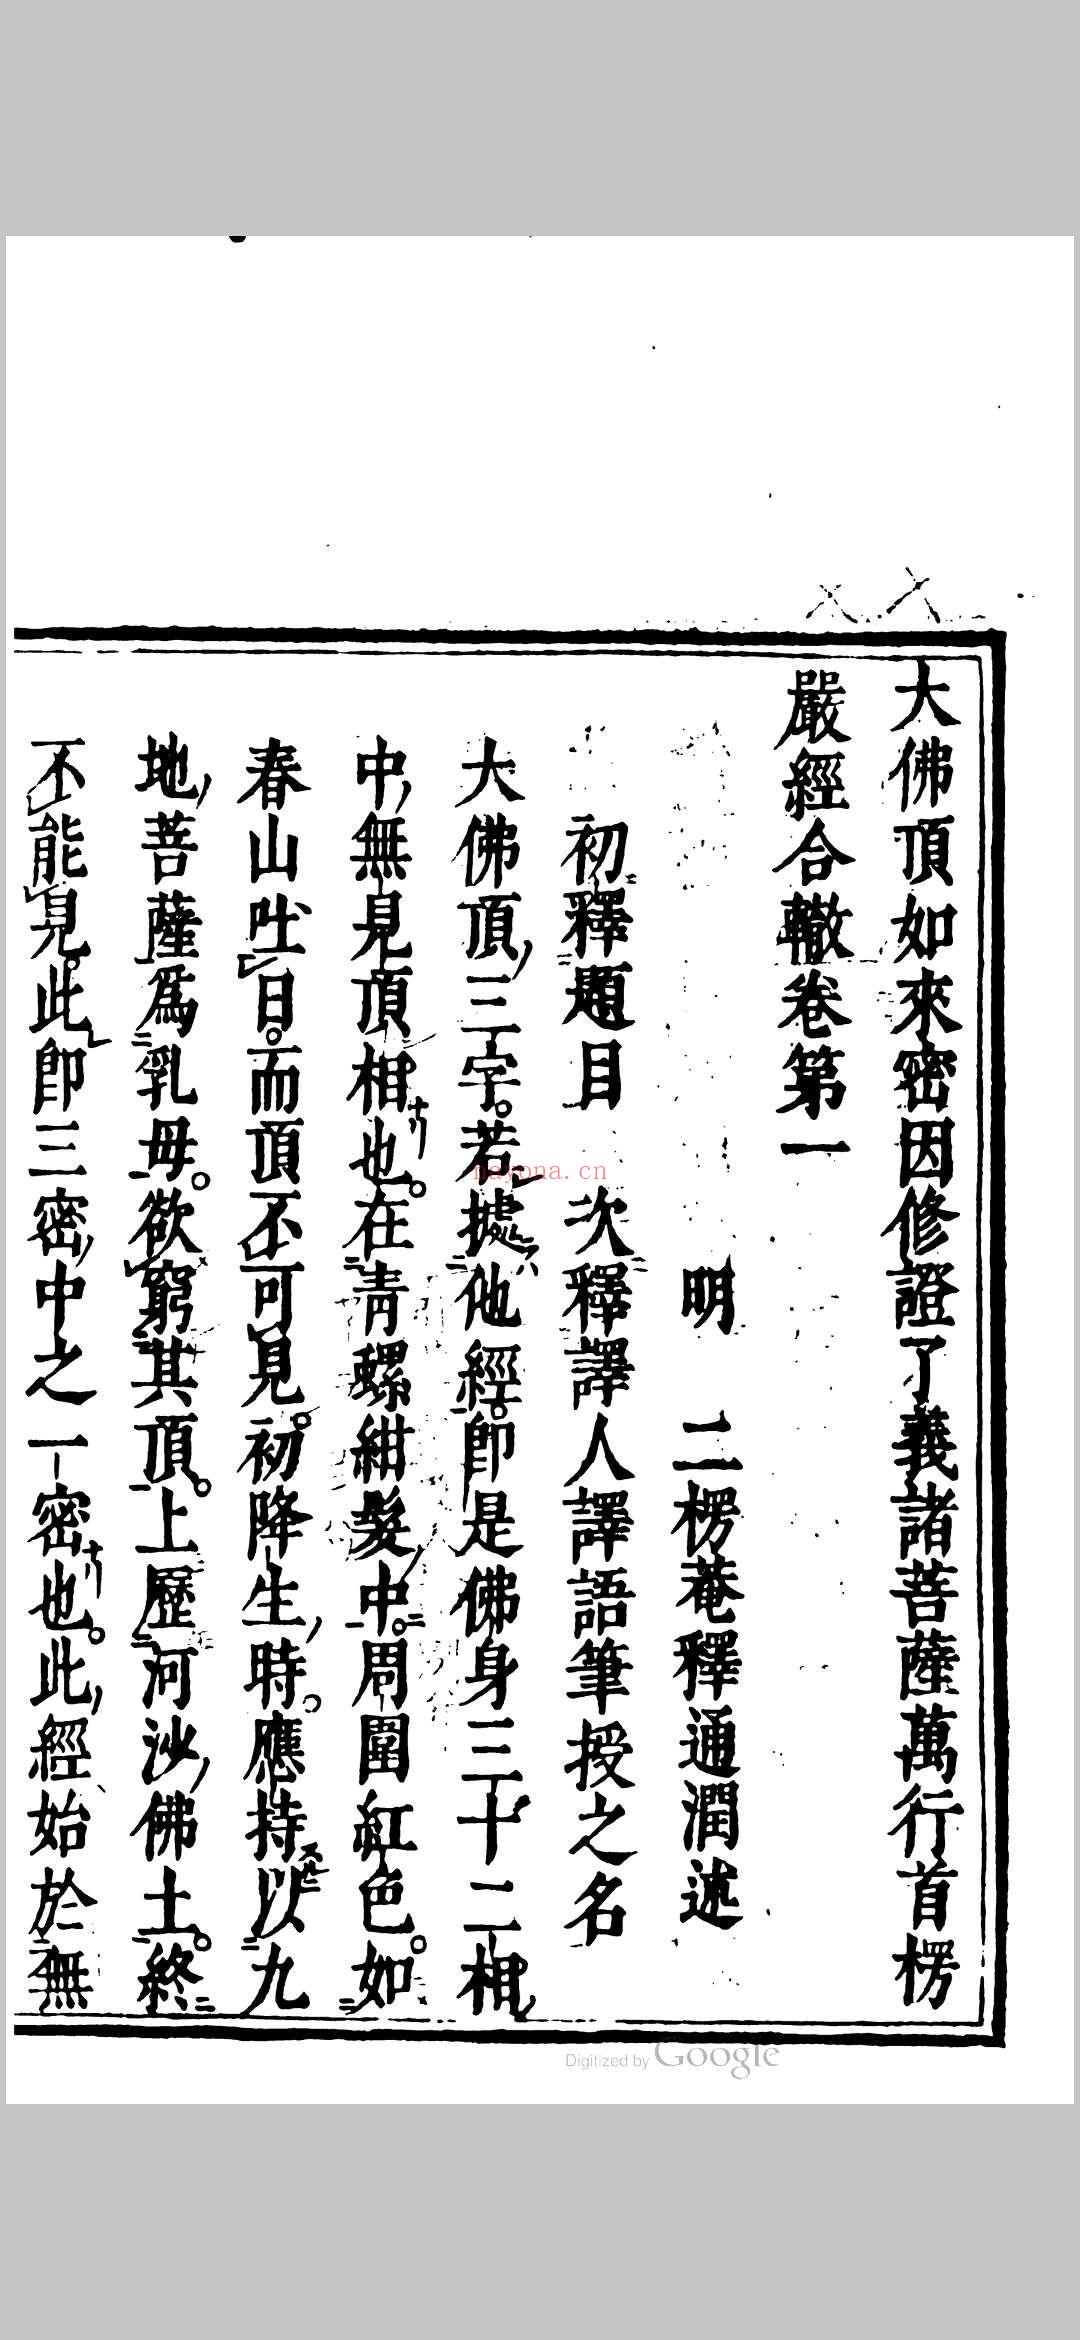 大佛頂如來密因修證了義諸菩薩萬行首楞
嚴經合轍卷第一
明 二楞菴釋通潤述
初釋題目 次釋譯人譯語筆授之名
大佛頂三字若據他經即是佛身三十二相
中無見頂相也在青螺紺髮中周圍紅色如
春山吐日而頂不可見初降生時應持以九
地菩薩爲乳母欲窮其頂上歷河沙佛土終
不能見此即三密中之一密也此經始於無
nayona.cn
Digitized by Google